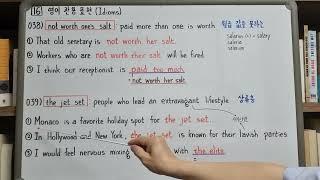 16 영어 관용 표현 (Idioms)
038) not worth one's salt : paid more than one is worth 월급 값을 못하는
① That old secretary is not worth her salt. salarius (=) salary
② Workers who are not worth their salt will be fired. salaria
③ I think our receptionist is paid too much.
= not worth her salt.
039) the jet set : people who lead an extravagant lifestyle 상류층
① Monaco is a favorite holiday spot for the jet set.
② In Hollywood and New York, the jet set is known for their lavish parties
③ I would feel nervous mixing with the elite.